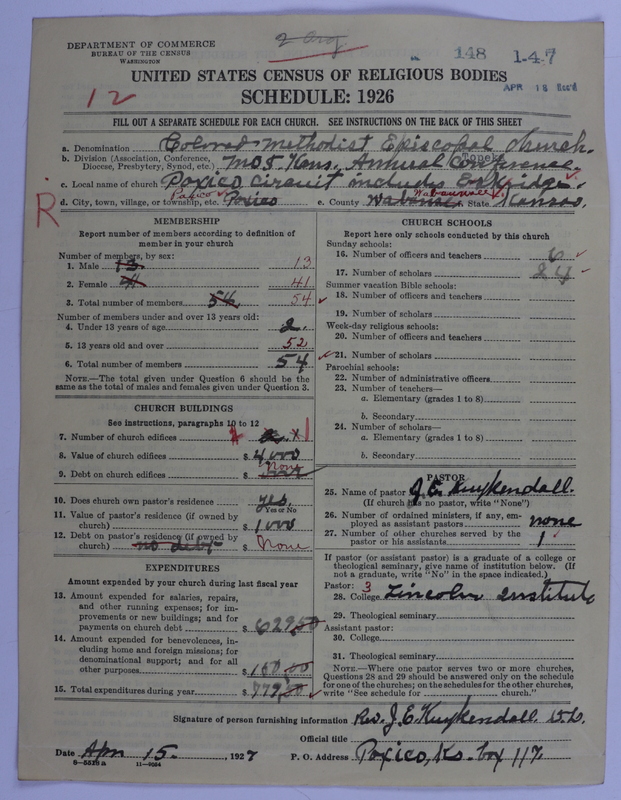 2 Org
148 1-4-7
DEPARTMENT OF COMMERCE
BUREAU OF THE CENSUS
WASHINGTON
APR 18 Rec'd
12
UNITED STATES CENSUS OF RELIGIOUS BODIES
SCHEDULE: 1926
FILL OUT A SEPARATE SCHEDULE FOR EACH CHURCH. SEE INSTRUCTIONS ON THE BACK OF THIS SHEET
a. Denomination Colored Methodist Episcopal Church.
b. Division (Association, Conference, Diocese, Presbytery, Synod, etc.) Mo & Kans. Annual Conference Topeka
c. Local name of church Paxico Circuit include Eskridge
d. City, town, village, or township, etc. Paxico Paxico e. County Wabaunsee f. State Kansas.
R
MEMBERSHIP
Report number of members according to definition of
member in your church
Number of members, by sex:
1. Male 13 13
2. Female 41 41
3. Total number of members 54 54
Number of members under and over 13 years old:
4. Under 13 years of age 2.
5. 13 years old and over 52
6. Total number of members 54
NOTE.—The total given under Question 6 should be the
same as the total of males and females given under Question 3.
CHURCH BUILDINGS
See instructions, paragraphs 10 to 12
7. Number of church edifices 1
8. Value of church edifices $ 4,000
9. Debt on church edifices $ None
10. Does church own pastor's residence yes.
Yes or No
11. Value of pastor's residence (if owned by
church) $ 1000
12. Debt on pastor's residence (if owned by
church) no debt $ None
EXPENDITURES
Amount expended by your church during last fiscal year
13. Amount expended for salaries, repairs,
and other running expenses; for im-
provements or new buildings; and for
payments on church debt $ 629.50
14. Amount expended for benevolences, in-
cluding home and foreign missions; for
denominational support; and for all
other purposes $ 150.00
15. Total expenditures during year $ 779.50
CHURCH SCHOOLS
Report here only schools conducted by this church
Sunday schools:
16. Number of officers and teachers 6
17. Number of scholars 24
Summer vacation Bible schools:
18. Number of officers and teachers
19. Number of scholars
Week-day religious schools:
20. Number of officers and teachers
21. Number of scholars
Parochial schools:
22. Number of administrative officers
23. Number of teachers—
a. Elementary (grades 1 to 8)
b. Secondary
24. Number of scholars—
a. Elementary (grades 1 to 8)
b. Secondary
PASTOR
25. Name of pastor J. E. Kuykendall.
(If church has no pastor, write "None")
26. Number of ordained ministers, if any, em-
ployed as assistant pastors none
27. Number of other churches served by the
pastor or his assistants 1
If pastor (or assistant pastor) is a graduate of a college or
theological seminary, give name of institution below. (If
not a graduate, write "No" in the space indicated.)
Pastor: 3
28. College Lincoln Institute
29. Theological seminary
Assistant pastor:
30. College
31. Theological seminary
NOTE.—Where one pastor serves two or more churches,
Questions 28 and 29 should be answered only on the schedule
for one of the churches; on the schedules for the other churches,
write "See schedule for church."
Signature of person furnishing information Rev. J. E. Kuykendall
Official title
Date Apr 15. 1927 P. O. Address Paxico, Ks. box 117.
8—5518a 11—9084